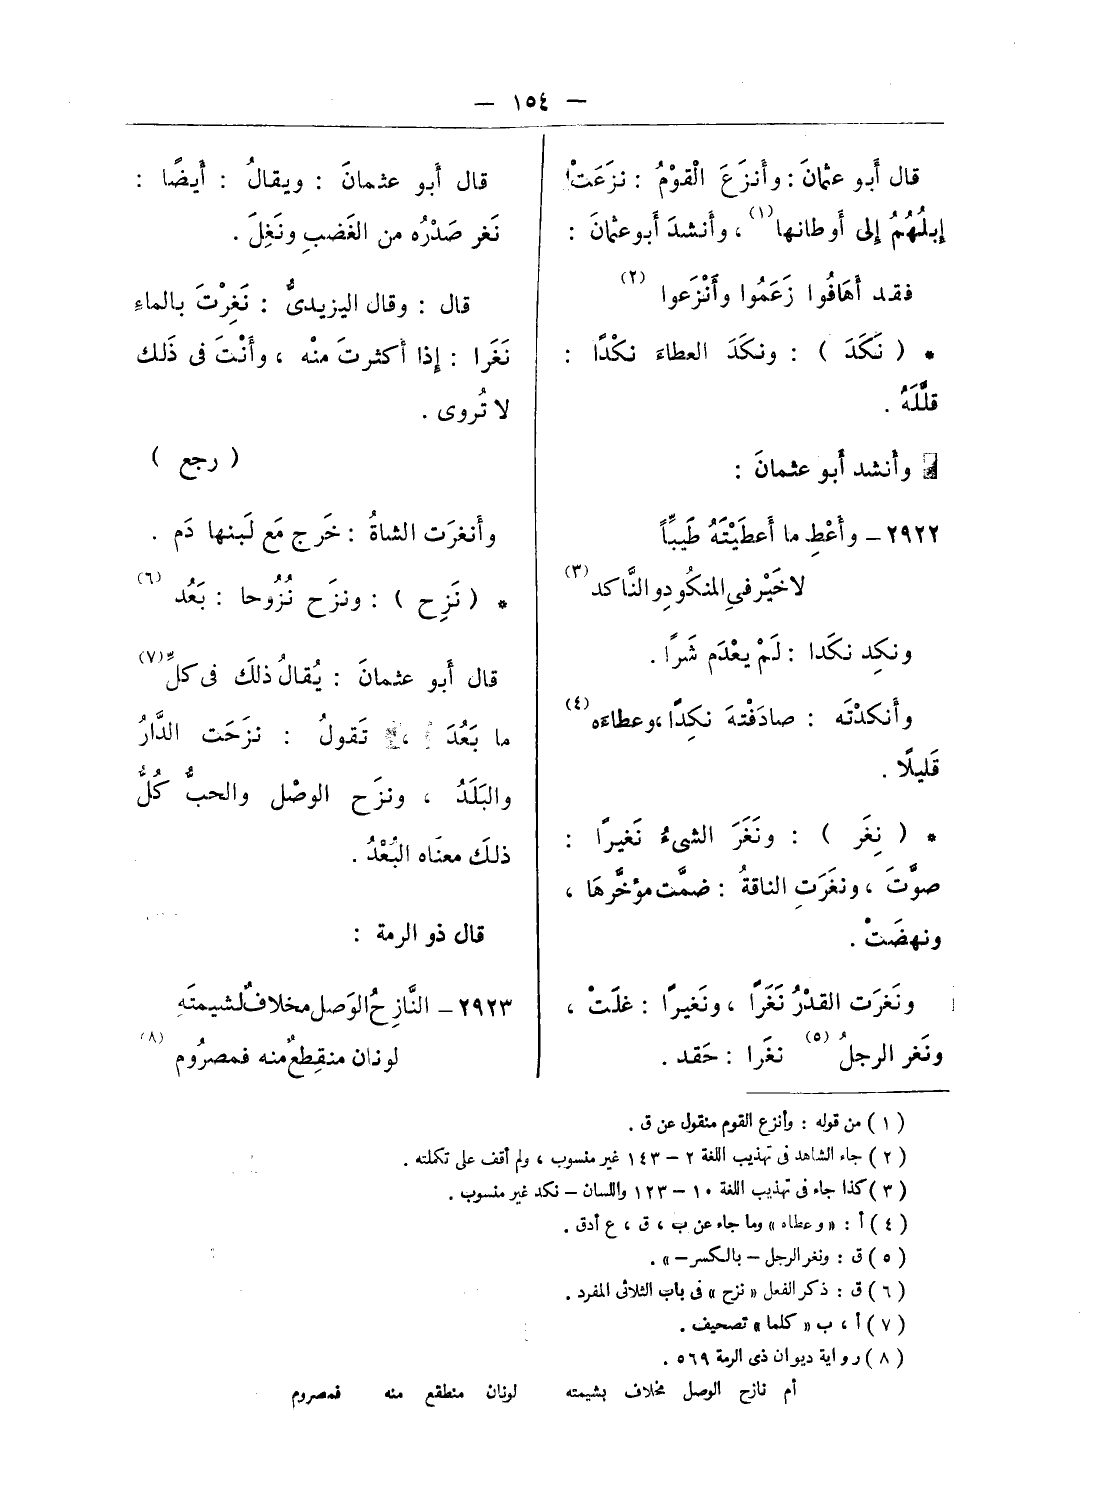 — ١٥٤ —
قال أَبو عثمانَ : وأَنزَعَ الْقومُ : نزَعَتْ
إِبلُهُمُ إلى أَوطانها(١) ، وأَنشدَ أَبوعثمانَ :
فقد أَهَافُوا زَعَمُوا وأَنْزَعوا (٢)
* ( نَكَدَ ) : ونكَدَ العطاءَ نكْدًا :
قلَّلَهُ .
وأَنشد أَبو عثمانَ :
٢٩٢٢ – وأَعْطِ ما أَعطَيْتَهُ طَيِّباً
لاخَيْر فى المنكُودِ والنَّاكد (٣)
ونكِد نكَدا : لَمْ يعْدَم شَرًا .
وأَنكدْتَه : صادَفْتهَ نكِدًا ،وعطاءَه (٤)
قَليلًا .
* ( نِغَر ) : ونَغَرَ الشىءُ نَغيرًا :
صوَّتَ ، ونغَرَتِ الناقةُ : ضمَّت مؤخَّرهَا ،
ونهضَتْ .
ونَغرَت القدْرُ نَغَرًا ، ونَغيرًا : غلَتْ ،
ونَغر الرجلُ (٥) نغَرا : حَقد .
قال أَبو عثمانَ : ويقالُ : أَيضًا :
نَغر صَدْرُه من الغَضبِ ونَغِلَ .
قال : وقال اليزيدىُّ : نَغِرْتَ بالماءِ
نَغَرا : إِذا أَكثرتَ منْه ، وأَنْتَ فى ذَلك
لا تُروى .
( رجع )
وأَنغرَت الشاةُ : خَرج مَع لَبنها دَم .
* ( نَزِح ) : ونزَح نُزُوحا : بَعُد (٦)
قال أَبو عثمانَ : يُقالُ ذلكَ فى كلِّ (٧)
ما بَعُدَ ، تَقولُ : نزَحَت الدَّارُ
والبَلَدُ ، ونزَح الوصْل والحبُّ كُلُّ
ذلكَ معنَاه البُعْدُ .
قال ذو الرمة :
٢٩٢٣ – النَّازِحُ الوَصل مخلافٌ لشيمتَهِ
لونان منقِطعٌ منه فمصرُوم (٨)
( ١ ) من قوله : وأنزع القوم منقول عن ق .
( ٢ ) جاء الشاهد فى تهذيب اللغة ٢ – ١٤٣ غير منسوب ، ولم أقف على تكملته .
( ٣ ) كذا جاء فى تهذيب اللغة ١٠ – ١٢٣ واللسان – نكد غير منسوب .
( ٤ ) أ : « وعطاه » وما جاء عن ب ، ق ، ع أدق .
( ٥ ) ق : ونغر الرجل – بالكسر – » .
( ٦ ) ق : ذكر الفعل « نزح » فى باب الثلاثى المفرد .
( ٧ ) أ ، ب « كلما » تصحيف .
( ٨ ) رواية ديوان ذى الرمة ٥٦٩ .
أم نازح الوصل مخلاف بشيمته لونان منطقع منه فمصروم